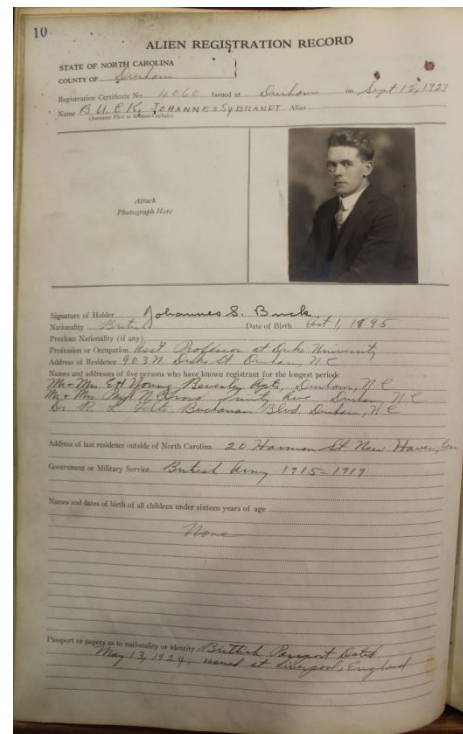 10
ALIEN REGISTRATION RECORD
STATE OF NORTH CAROLINA
COUNTY OF Durham
Registration Certificate No. 4060 Issued at Durham on Sept 12, 1927
Name BUCK, JOHANNES SYBRANDT Alias
(Surname First in Roman Capitals)
Attach
Photograph Here
Signature of Holder Johannes S. Buck
Nationality British Date of Birth Oct 1, 1895
Previous Nationality (if any)
Profession or Occupation Asst Professor at Duke University
Address of Residence 903 N Duke St. Durham, N C
Names and addresses of five persons who have known registrant for the longest period:
Mr & Mrs. Young Beverley Apts, Durham, N C
Mr & Mrs Paul N Trinity Ave Durham, N C
Dr. Buchanan Blvd. Durham, N C
Address of last residence outside of North Carolina 20 Harmon St New Haven, Conn
Government or Military Service British Army 1915-1919
Names and dates of birth of all children under sixteen years of age
None
Passport or papers as to nationality or identity British Passport Dated
May 13, 1924. issued at Liverpool, England